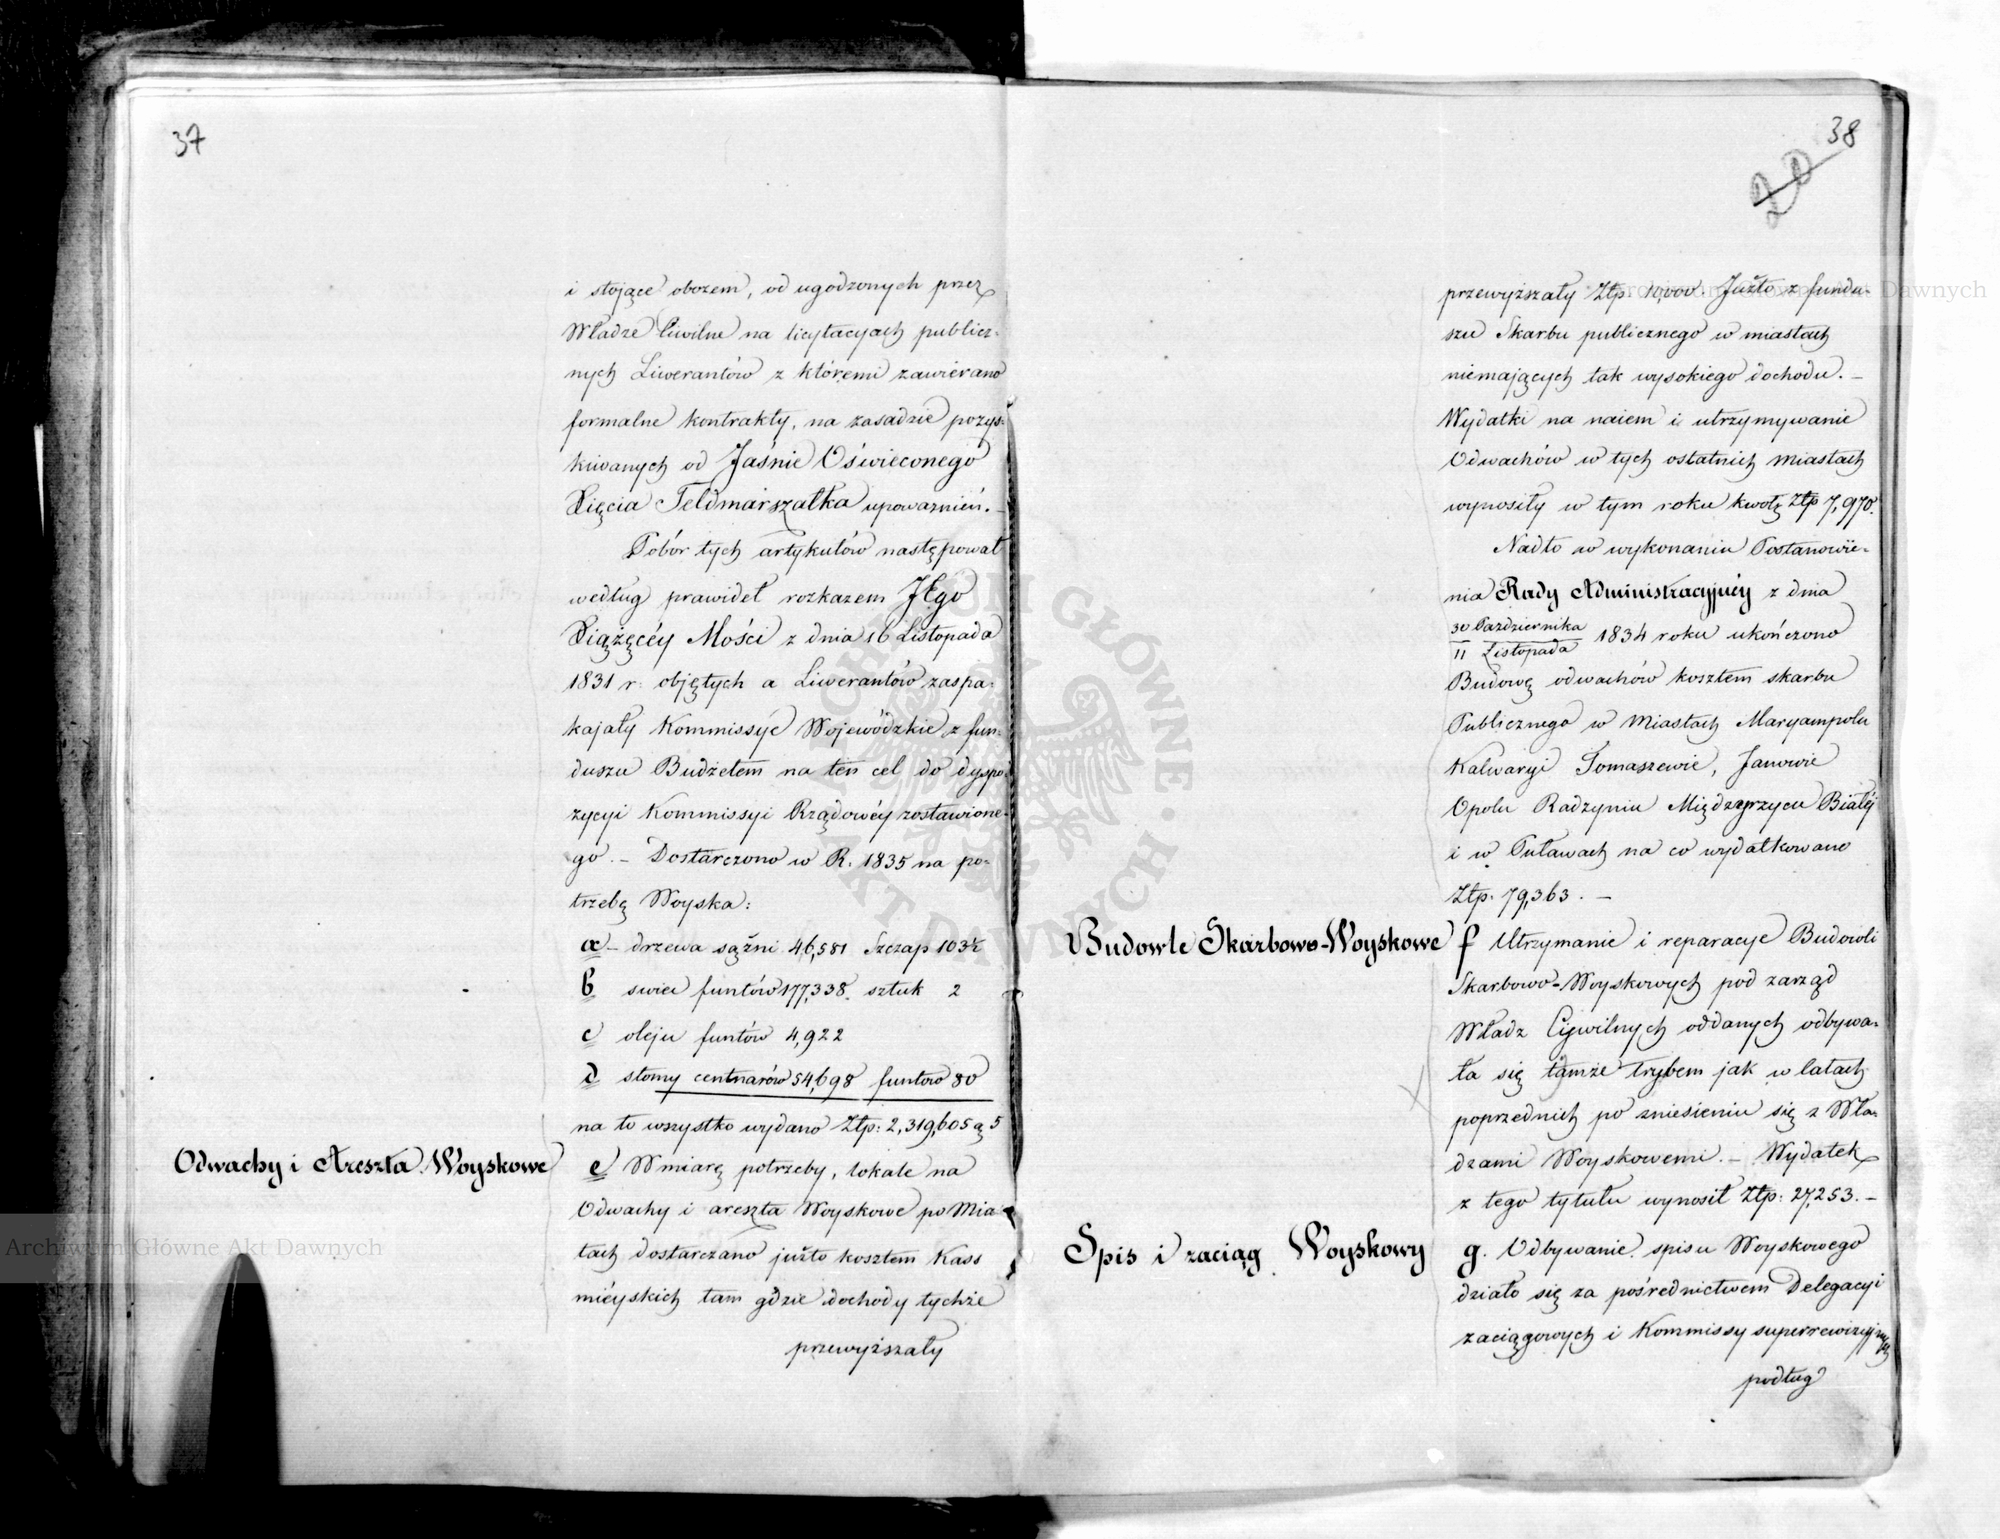 37
i stojące obozem, od ugodzonych przez
Władze Ciwilne na licytacyach publicz-
nych Liwerantów z któremi zawierano
formalne kontrakty, na zasadzie pozys-
kiwanych od Jaśnie Oświeconego
Xięcia Feldmarszałka upoważnień. –
Pobór tych artykułów następował
według prawideł rozkazem JEgo
Xiążęcéy Mości z dnia 16 Listopada
1831 r. objętych a Liwerantów zaspa-
kajały Kommissye Wojewódzkie z fun-
duszu Budżetem na ten cel do dyspo-
zycyi Kommissyi Rządowéy zostawione-
go. – Dostarczono w R. 1835 na po-
trzebę Woyska:
a – drzewa sążni 46,581 Szczap 103½
b swiec funtów 177,338. sztuk 2
c oleju funtów 4,922
d słomy centnarów 54,698 funtów 80
na to wszystko wydano Złp: 2,319,605 g 5
Odwachy i Areszta Woyskowe
e W miarę potrzeby, lokale na
Odwachy i areszta Woyskowe po Mia-
tach dostarczano jużto kosztem Kass
miéyskich tam gdzie dochody tychże
przewyższały
38
20
przewyższały Złp. 10,000. Jużto z fundu-
szu Skarbu publicznego w miastach
niemających tak wysokiego dochodu. –
Wydatki na naiem i utrzymywanie
Odwachów w tych ostatnich miastach
wynosiły w tym roku kwotę Złp 7,970.
Nadto w wykonaniu Postanowie-
nia Rady Administracyjnéy z dnia
30 Października
11 Listopada 1834 roku ukończono
Budowę odwachów kosztem skarbu
Publicznego w Miastach Maryampolu
Kalwaryi Tomaszewie, Janowie
Opolu Radzyniu Międzyrzycu Białéj
i w Puławach na co wydatkowano
Złp. 79,363. –
Budowle Skarbowo-Woyskowe
f Utrzymanie i reparacye Budowli
Skarbowo-Woyskowych pod zarząd
Władz Cywilnych oddanych odbywa-
ła się tamże trybem jak w latach
poprzednich po zniesieniu się z Wła-
dzami Woyskowemi. – Wydatek
z tego tytułu wynosił Złp: 27,253. –
Spis i zaciąg Woyskowy
g. Odbywanie spisu Woyskowego
działo się za pośrednictwem Delegacyi
zaciągowych i Kommissy superrewizyjnych
podług
Archiwum Główne Akt Dawnych